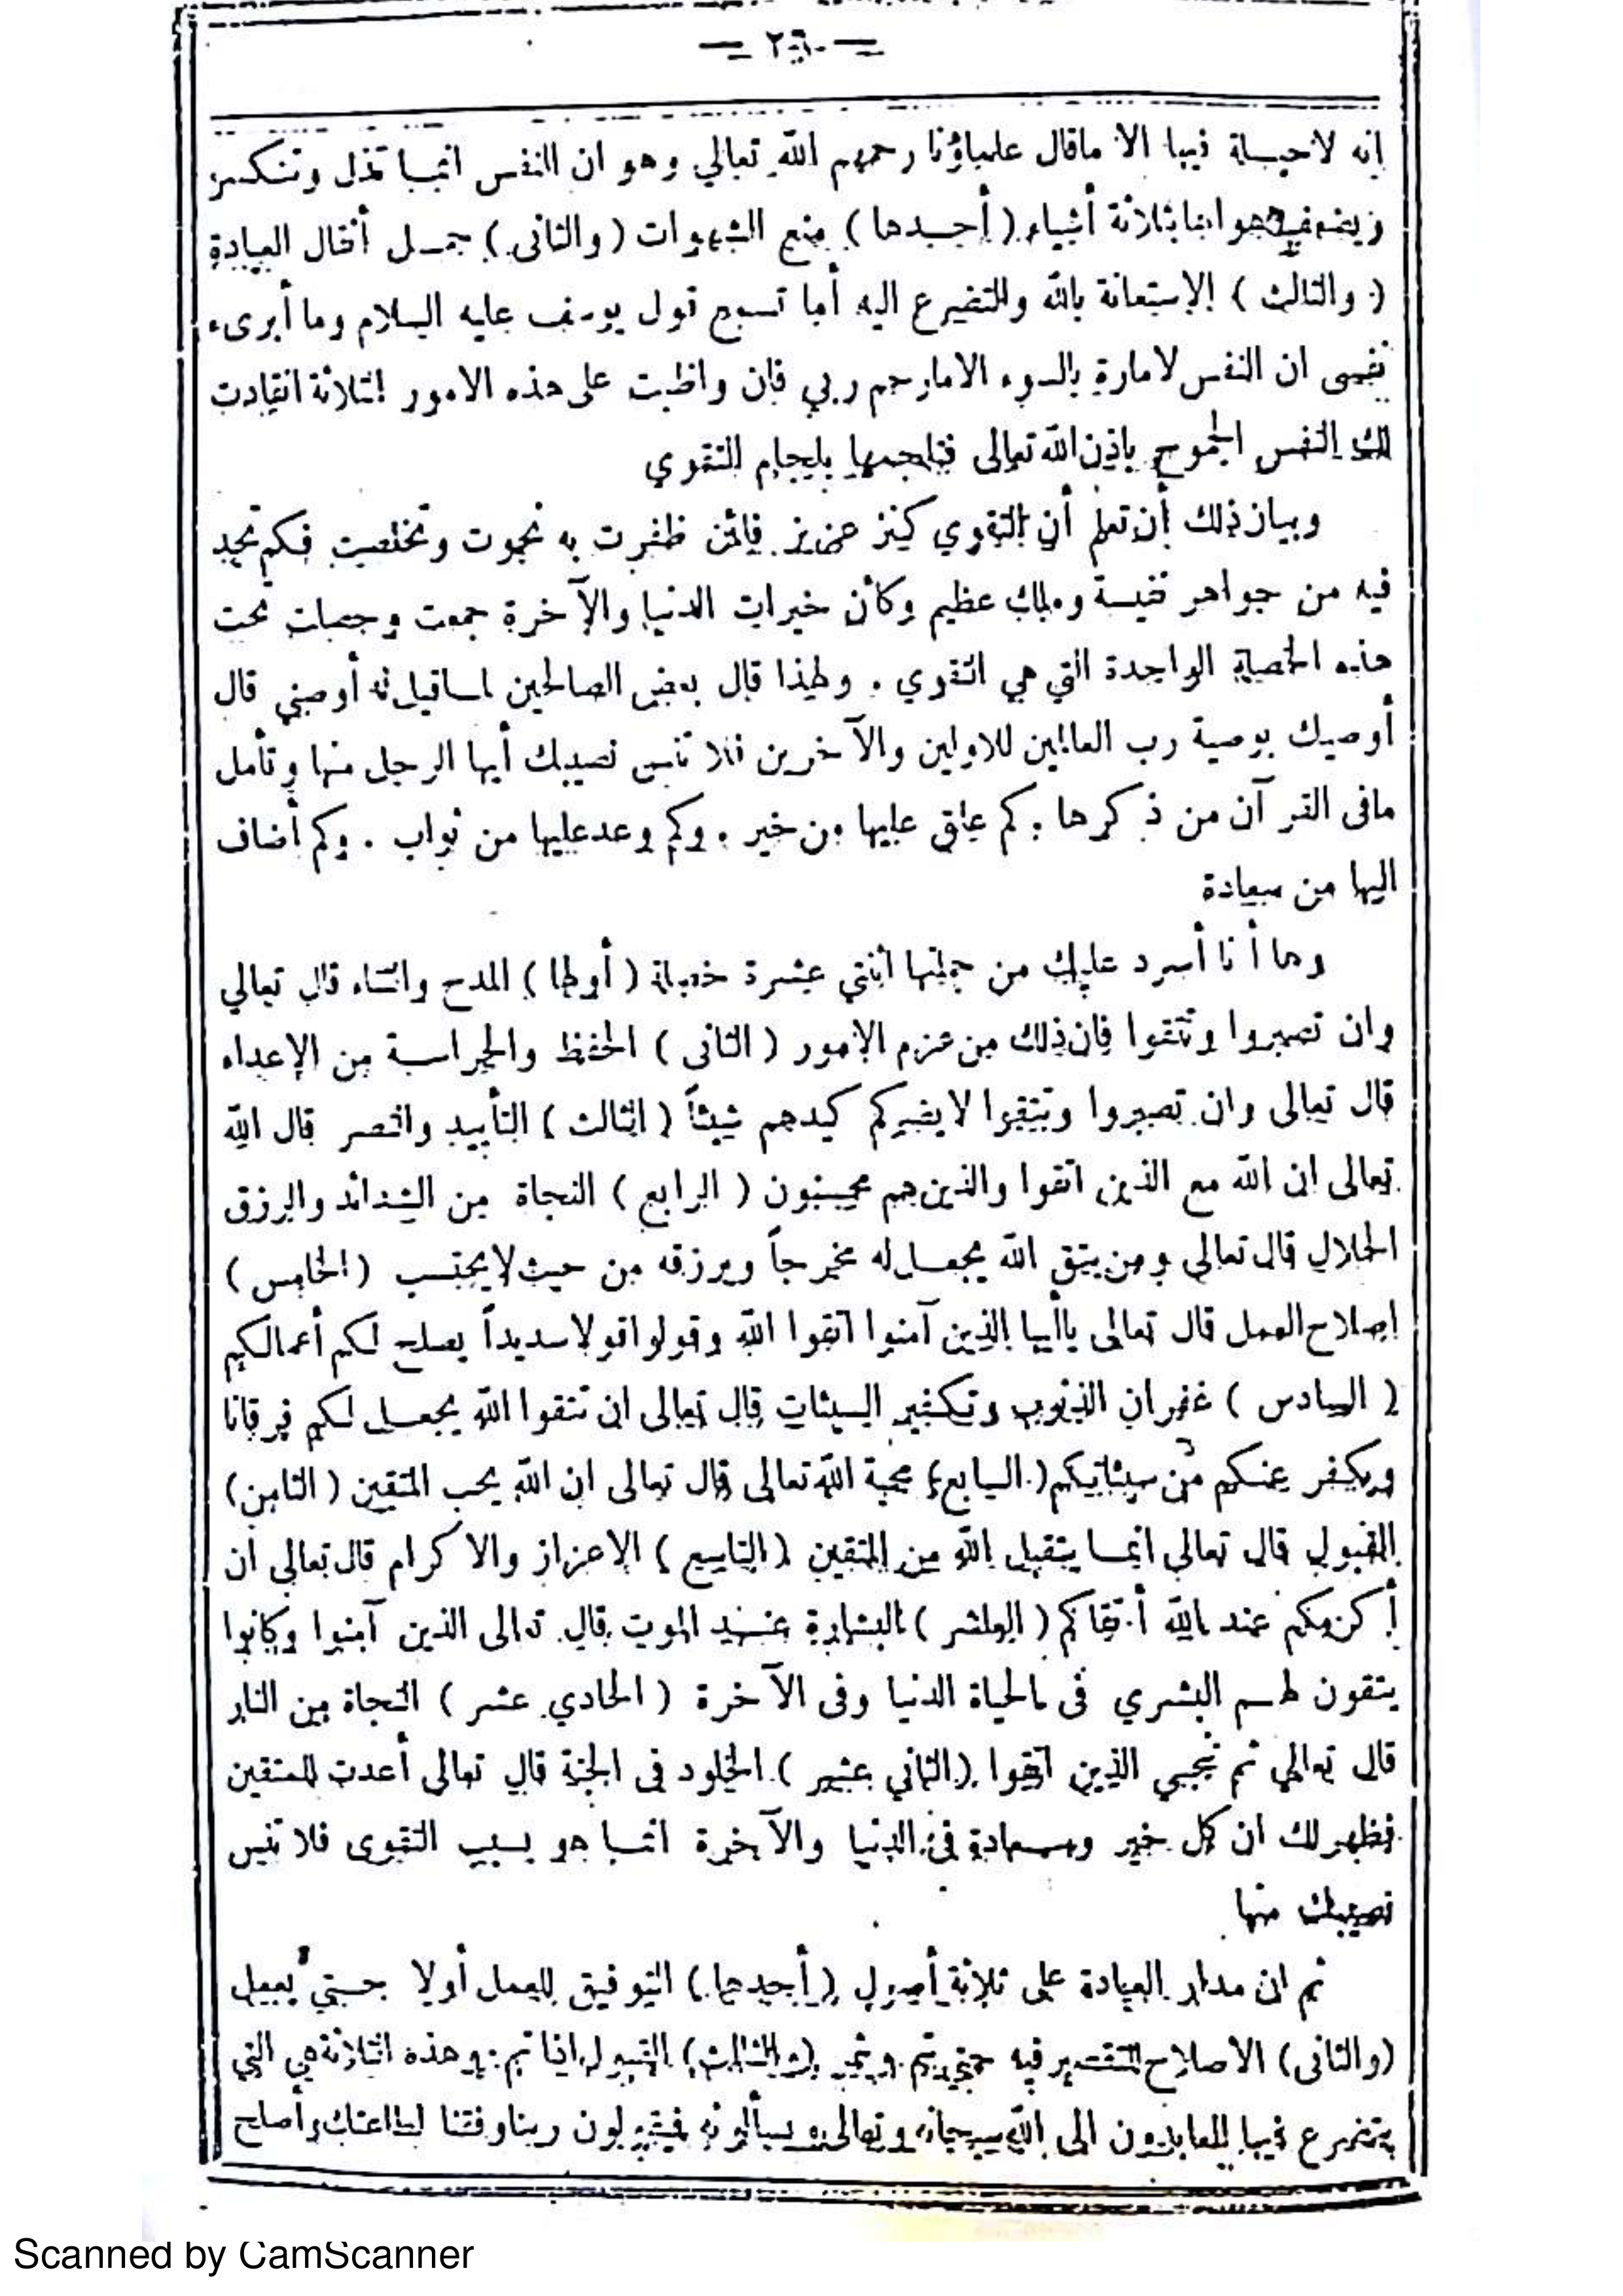 انه لا حيلة فيها الا ماقال علماؤنا رحمهم الله تعالي وهو ان النفس انمـا تذل وتنكسر
ويضعف هواها بثلاثة أشياء (أحـدها) منع الشهوات (والثانى) حمـل أثقال العبادة
(والثالث) الاستعانة بالله والتضرع اليه أما تسمع قول يوسف عليه السلام وما أبرىء
نفسى ان النفس لامارة بالسوء الامارحم ربي فان واظبت على هذه الامور الثلاثة انقادت
لك النفس الجموح باذن الله تعالى فتلجمها بلجام التقوي
وبيان ذلك أن تعلم أن التقوي كنز عزيز فلئن ظفرت به نجوت وتخلصت فكم تجد
فيه من جواهر نفيسة وملك عظيم وكأن خيرات الدنيا والآخرة جمعت وجعلت تحت
هذه الخصلة الواحدة التي هي التقوي . ولهذا قال بعض الصالحين لمـا قيل له أوصني قال
أوصيك بوصية رب العالمين للاولين والآخرين فلا تنس نصيبك أيها الرجل منها وتأمل
مافى القرآن من ذكرها . كم علق عليها من خير . وكم وعد عليها من ثواب . وكم أضاف
اليها من سعادة
وها أنا أسرد عليك من جملتها اثنتي عشرة خصلة (أولها) المدح والثناء قال تعالي
وان تصبروا وتتقوا فان ذلك من عزم الامور (الثانى) الحفظ والحراسـة من الاعداء
قال تعالى وان تصبروا وتتقوا لا يضركم كيدهم شيئاً (الثالث) التأييد والنصر قال الله
تعالى ان الله مع الذين اتقوا والذين هم محسنون (الرابع) النجاة من الشدائد والرزق
الحلال قال تعالى ومن يتق الله يجعـل له مخرجاً ويرزقه من حيث لا يحتسب (الخامس)
اصلاح العمل قال تعالى ياأيها الذين آمنوا اتقوا الله وقولوا قولا سديداً يصلح لكم أعمالكم
(السادس) غفران الذنوب وتكفير السيئات قال تعالى ان تتقوا الله يجعـل لكم فرقانا
ويكفر عنكم من سيئاتكم (السابع) محبة الله تعالى قال تعالى ان الله يحب المتقين (الثامن)
القبول قال تعالى انمـا يتقبل الله من المتقين (التاسع) الاعزاز والاكرام قال تعالى ان
أكرمكم عند الله أتقاكم (العاشر) البشارة عنـد الموت قال تعالى الذين آمنوا وكانوا
يتقون لهـم البشري فى الحياة الدنيا وفى الآخرة (الحادي عشر) النجاة من النار
قال تعالي ثم ننجي الذين اتقوا (الثاني عشر) الخلود فى الجنة قال تعالى أعدت للمتقين
فظهر لك ان كل خير وسـعادة فى الدنيا والآخرة انمـا هو بسبب التقوى فلا تنس
نصيبك منها
ثم ان مدار العبادة على ثلاثة أصول (أحدها) التوفيق للعمل أولا حـتي يعمل
(والثانى) الاصلاح للتقصير فيه حتى يتم (والثالث) القبول اذا تم . وهذه الثلاثة هي التي
يتضرع فيها العابدون الى الله سبحانه وتعالى ويسألونه فيقولون ربنا وفقنا لطاعتك وأصلح
Scanned by CamScanner